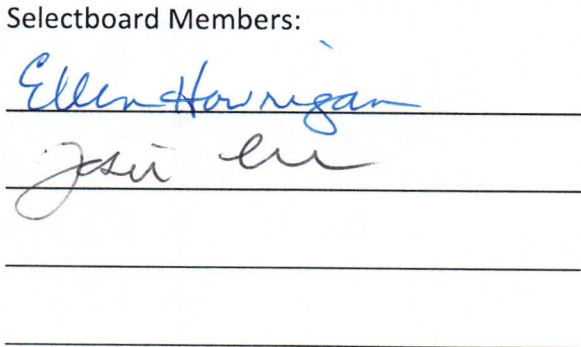 Selectboard Members:
Ellen Howrigan
Josie